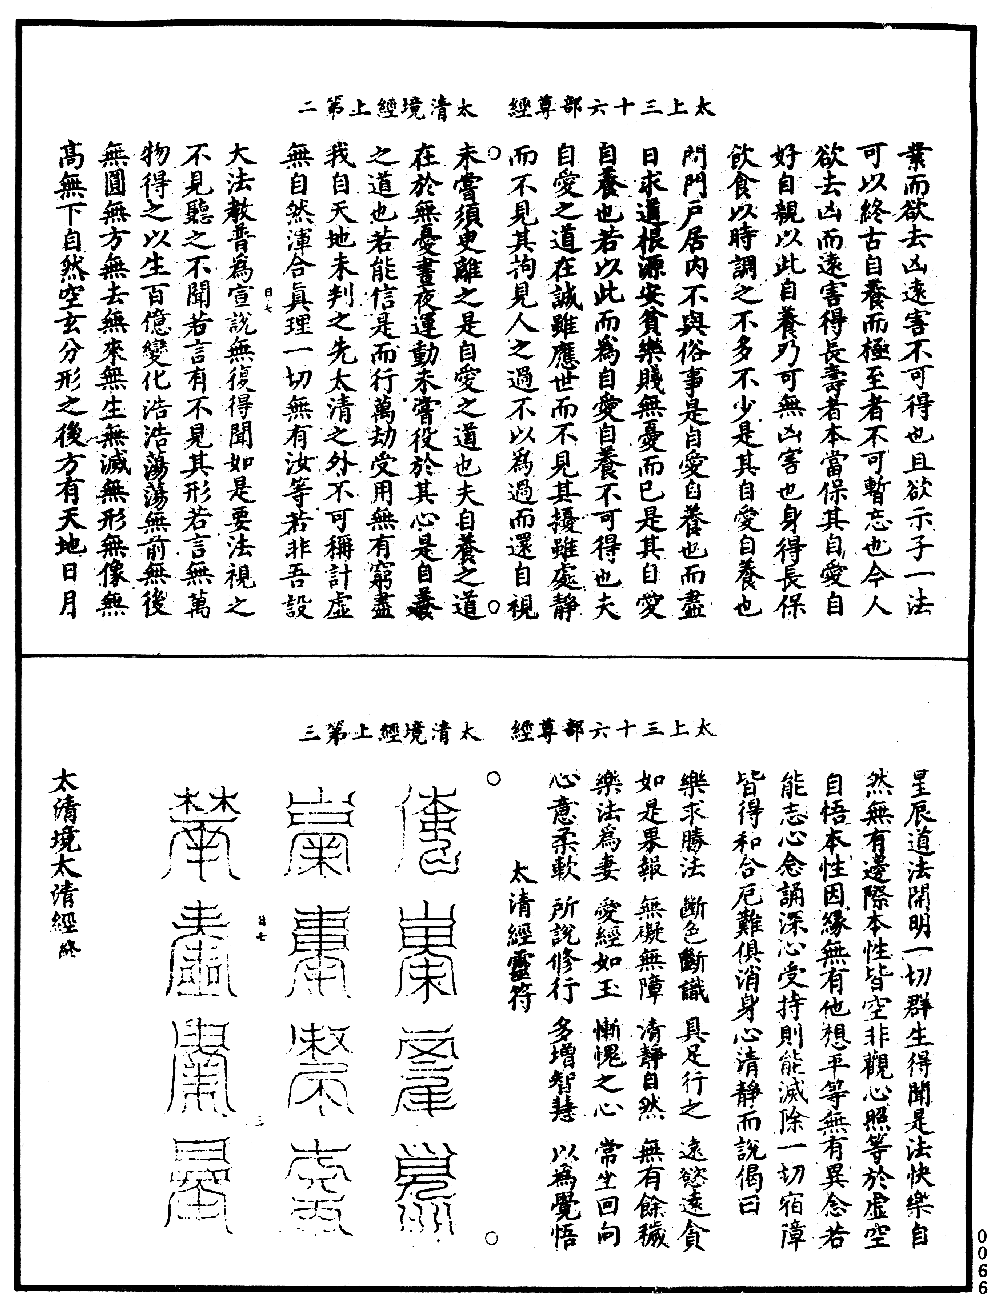 太上三十六部尊經　太清境經上第二
業而欲去凶遠害不可得也且欲示子一法
可以終古自養而極至者不可暫忘也今人
欲去凶而遠害得長壽者本當保其自愛自
好自親以此自養乃可無凶害也身得長保
飲食以時調之不多不少是其自愛自養也
問門戶居內不與俗事是自愛自養也而盡
日求道根源安貧樂賤無憂而已是其自愛
自養也若以此而為自愛自養不可得也夫
自愛之道在誠雖應世而不見其擾雖處靜
而不見其拘見人之過不以為過而還自視
未嘗須臾離之是自愛之道也夫自養之道
在於無憂晝夜運動未嘗役於其心是自養
之道也若能信是而行萬劫受用無有窮盡
我自天地未判之先太清之外不可稱計虛
無自然渾合真理一切無有汝等若非吾設
大法教普為宣說無復得聞如是要法視之
不見聽之不聞若言有不見其形若言無萬
物得之以生百億變化浩浩蕩蕩無前無後
無圓無方無去無來無生無滅無形無像無
高無下自然空玄分形之後方有天地日月
太上三十六部尊經　太清境經上第三
星辰道法開明一切群生得聞是法快樂自
然無有邊際本性皆空非觀心照等於虛空
自悟本性因緣無有他想平等無有異念若
能志心念誦深心受持則能滅除一切宿障
皆得和合厄難俱消身心清靜而說偈曰
樂求勝法　斷色斷識　具足行之　遠慾遠貪
如是果報　無礙無障　清靜自然　無有餘穢
樂法為妻　愛經如玉　慚愧之心　常生回向
心意柔軟　所說修行　多增智慧　以為覺悟
太清經靈符
太清境太清經終
0066